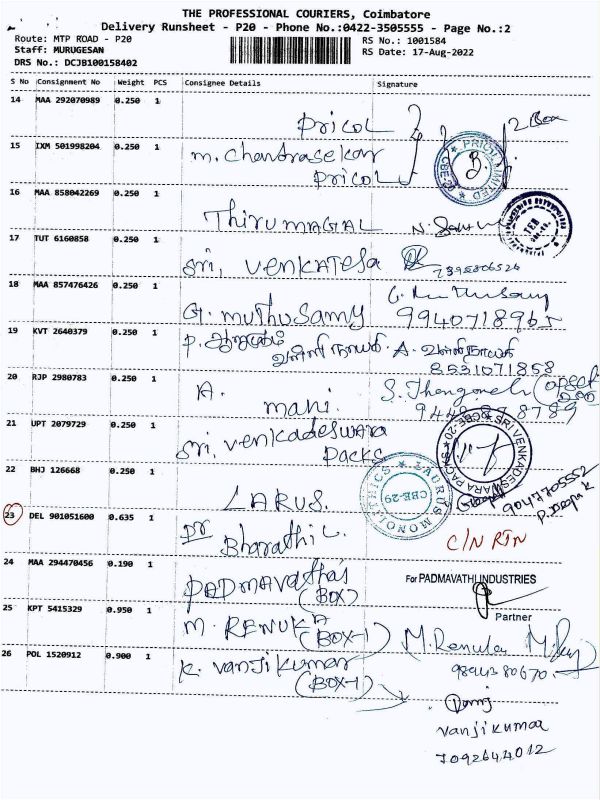 THE PROFESSIONAL COURIERS, Coimbatore
Delivery Runsheet - P20 - Phone No.:0422-3505555 - Page No.:2
Route: MTP ROAD - P20
Staff: MURUGESAN
DRS No.: DCJB100158402
RS No.: 1001584
RS Date: 17-Aug-2022
S No Consignment No Weight PCS Consignee Details Signature
14 MAA 292070989 0.250 1 Pricol 2 Box
15 IXM 501998204 0.250 1 M. Chandrasekar
Pricol
PRICOL LIMITED CBE-20
16 MAA 858042269 0.250 1 THIRUMAGAL
17 TUT 6160858 0.250 1 Sri, Venkatesa 7395806526
18 MAA 857476426 0.250 1 G. Muthusamy G. Muthusamy
9940718965
19 KVT 2640379 0.250 1 P. ஆறுமுகம்
வள்ளிநாயகி A. வள்ளிநாயகி
8531071858
20 RJP 2980783 0.250 1 A. mani.
21 UPT 2079729 0.250 1 Sri. Venkadeswara
Packs
SRI VENKADESWARA PACKS CBE-20
22 BHJ 126668 0.250 1 LARUS.
LAURUS MONOLITHICS CBE-29
9047705552
P. Deepak
23 DEL 901051600 0.635 1 Dr
Bharathi C. C/N RTN
24 MAA 294470456 0.190 1 PADMAVATHAS
(BOX)
For PADMAVATHI INDUSTRIES
Partner
25 KPT 5415329 0.950 1 M. RENUKA
(BOX-1) M. Renuka
9894380670.
26 POL 1520912 0.900 1 K. Vanjikumar
(BOX-1)
Vanjikumar
7092644012